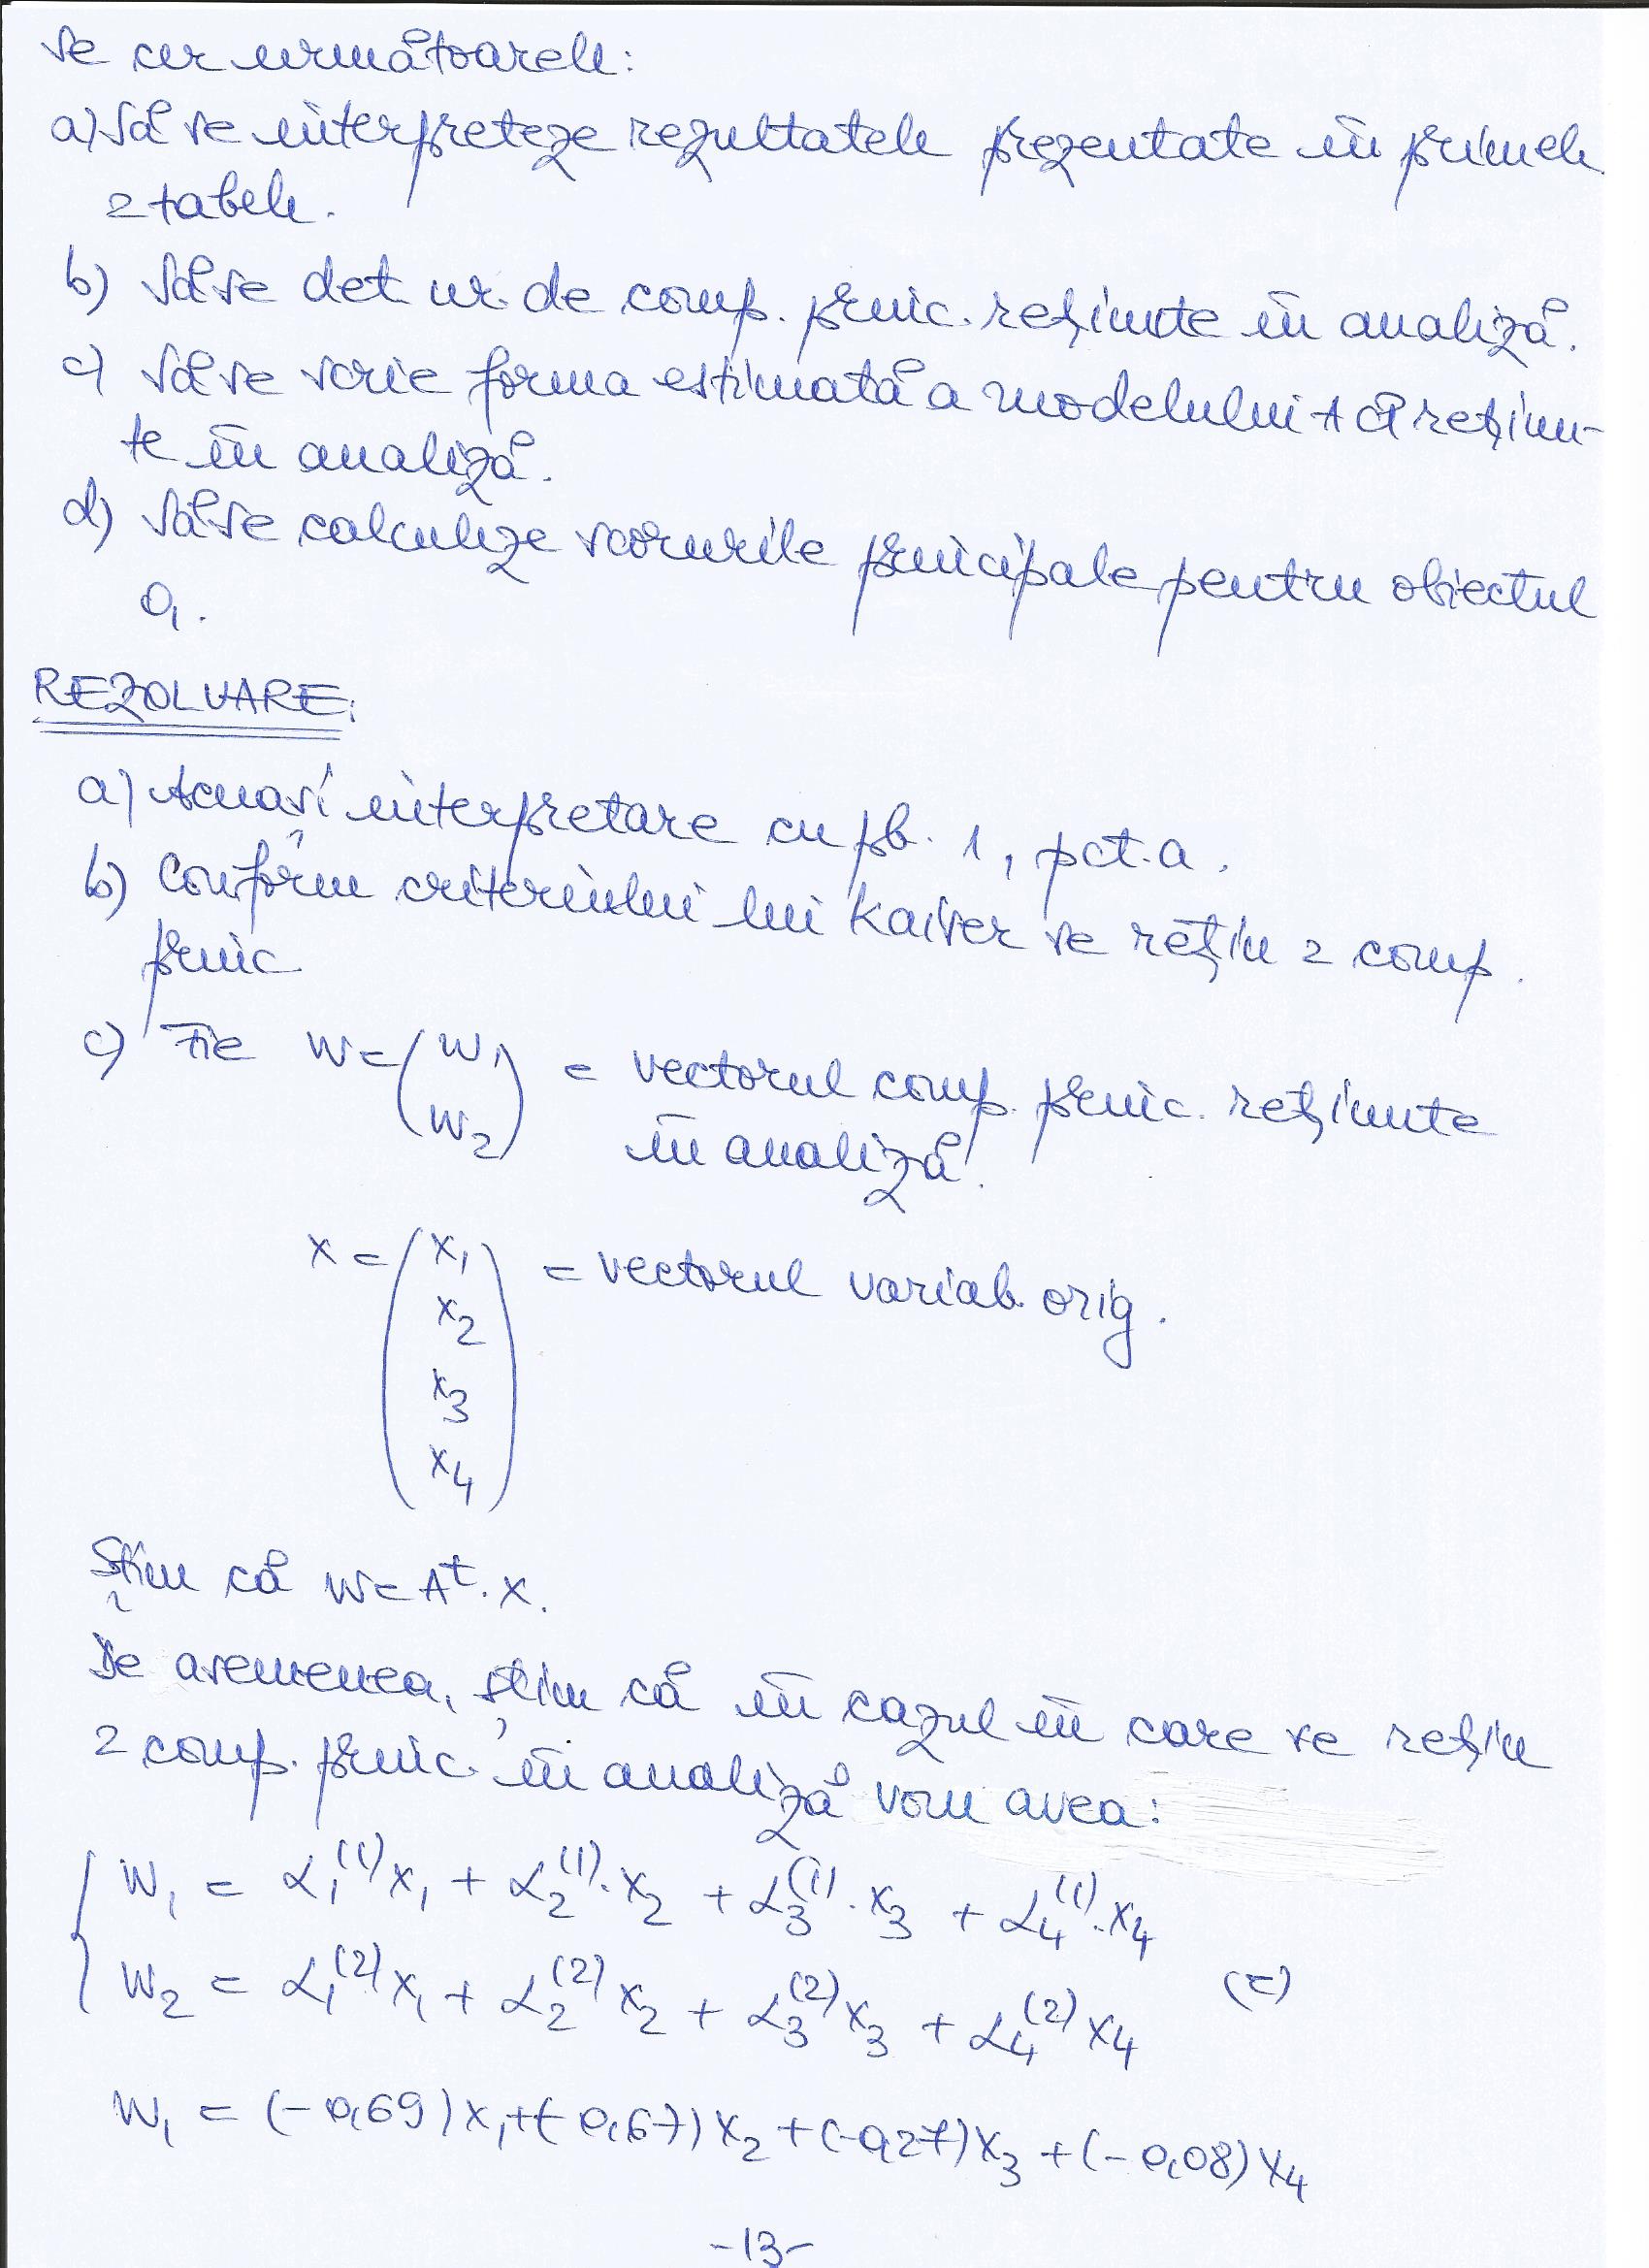 Se cer următoarele:
a) Să se interpreteze rezultatele prezentate în primele
2 tabele.
b) Să se det nr. de comp. princ. reținute în analiză.
c) Să se scrie forma estimată a modelului ACP reținu-
te în analiză.
d) Să se calculeze scorurile principale pentru obiectul
O₁.
REZOLVARE:
a) Aceeași interpretare cu pb. 1, pct. a.
b) Conform criteriului lui Kaiser se rețin 2 comp.
princ
c) Fie W = (W₁ W₂) = vectorul comp. princ. reținute
în analiză.
X = (X₁ X₂ X₃ X₄) = vectorul variab. orig.
Știm că W = Aᵗ · X.
De asemenea, știm că în cazul în care se rețin
2 comp. princ. în analiză vom avea:
W₁ = α₁⁽¹⁾X₁ + α₂⁽¹⁾·X₂ + α₃⁽¹⁾·X₃ + α₄⁽¹⁾·X₄
W₂ = α₁⁽²⁾X₁ + α₂⁽²⁾X₂ + α₃⁽²⁾X₃ + α₄⁽²⁾X₄ (=)
W₁ = (-0,69)X₁+(-0,67)X₂+(-0,27)X₃+(-0,08)X₄
-13-